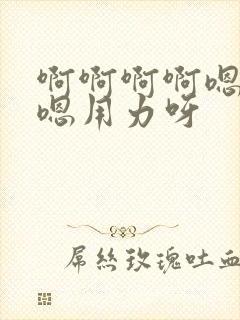 啊啊啊啊嗯
嗯用力呀
屌丝玫瑰吐血